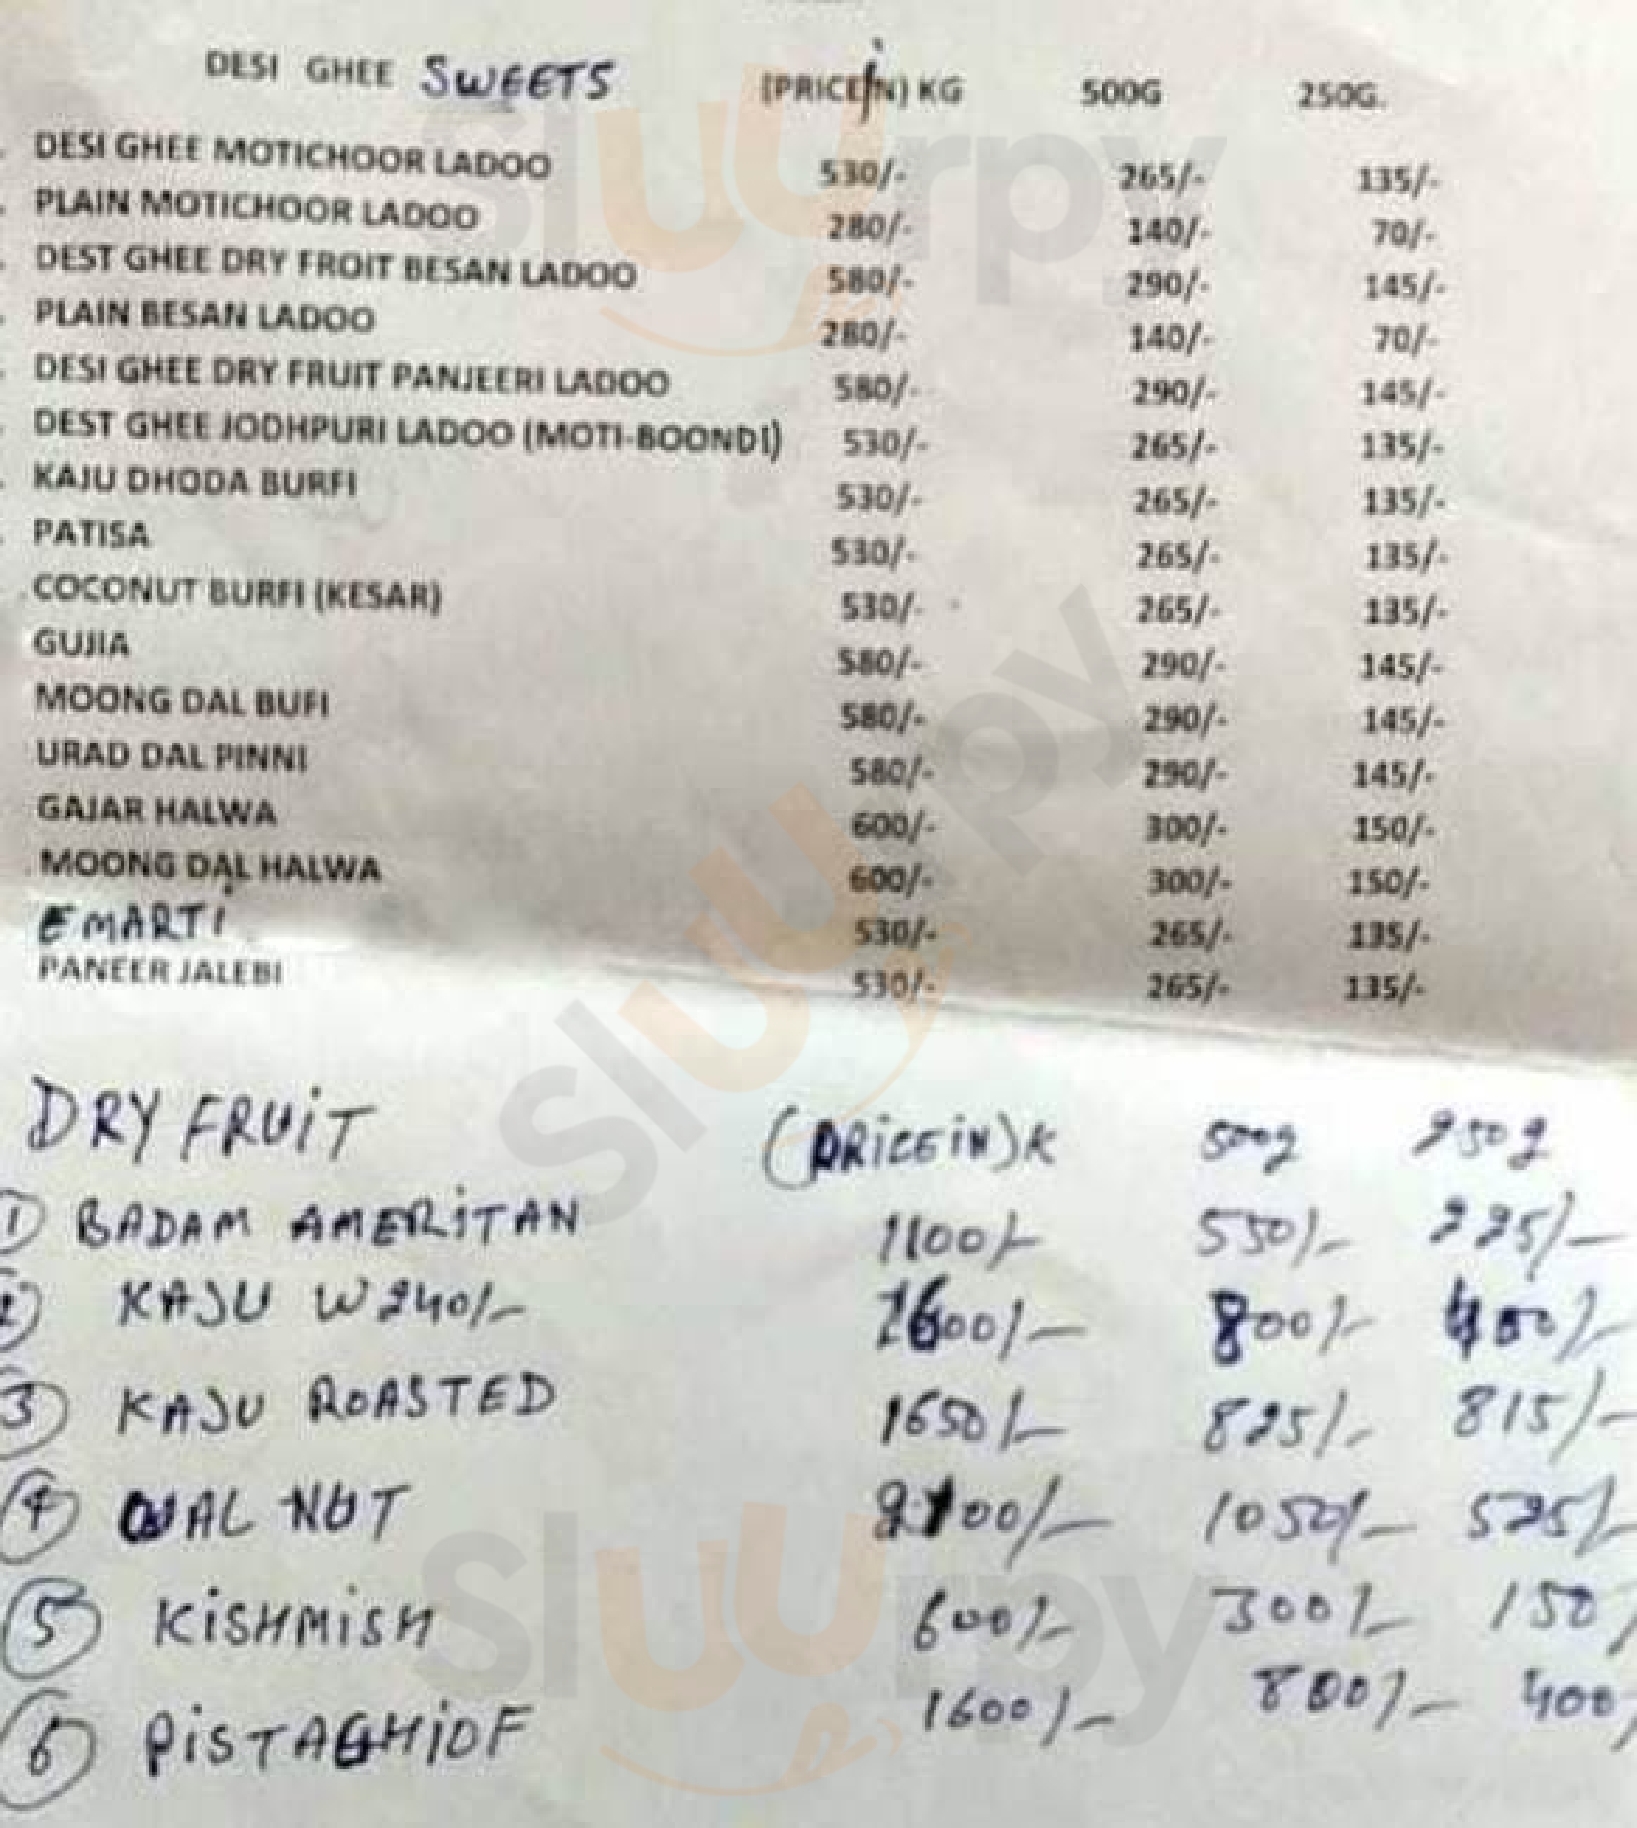 DESI GHEE SWEETS (PRICE IN) KG 500G 250G.
DESI GHEE MOTICHOOR LADOO 530/- 265/- 135/-
PLAIN MOTICHOOR LADOO 280/- 140/- 70/-
DEST GHEE DRY FROIT BESAN LADOO 580/- 290/- 145/-
PLAIN BESAN LADOO 280/- 140/- 70/-
DESI GHEE DRY FRUIT PANJEERI LADOO 580/- 290/- 145/-
DEST GHEE JODHPURI LADOO (MOTI-BOONDI) 530/- 265/- 135/-
KAJU DHODA BURFI 530/- 265/- 135/-
PATISA 530/- 265/- 135/-
COCONUT BURFI (KESAR) 530/- 265/- 135/-
GUJIA 580/- 290/- 145/-
MOONG DAL BUFI 580/- 290/- 145/-
URAD DAL PINNI 580/- 290/- 145/-
GAJAR HALWA 600/- 300/- 150/-
MOONG DAL HALWA 600/- 300/- 150/-
EMARTI 530/- 265/- 135/-
PANEER JALEBI 530/- 265/- 135/-
DRY FRUIT (PRICE IN) K 500g 250g
1 BADAM AMERITAN 1100/- 550/- 225/-
2 KAJU W240/- 1600/- 800/- 400/-
3 KAJU ROASTED 1650/- 825/- 815/-
4 WAL NUT 2100/- 1050/- 525/-
5 KISHMISH 600/- 300/- 150/
6 PISTAGHIOF 1600/- 800/- 400/
sluurpy
sluurpy
sluurpy